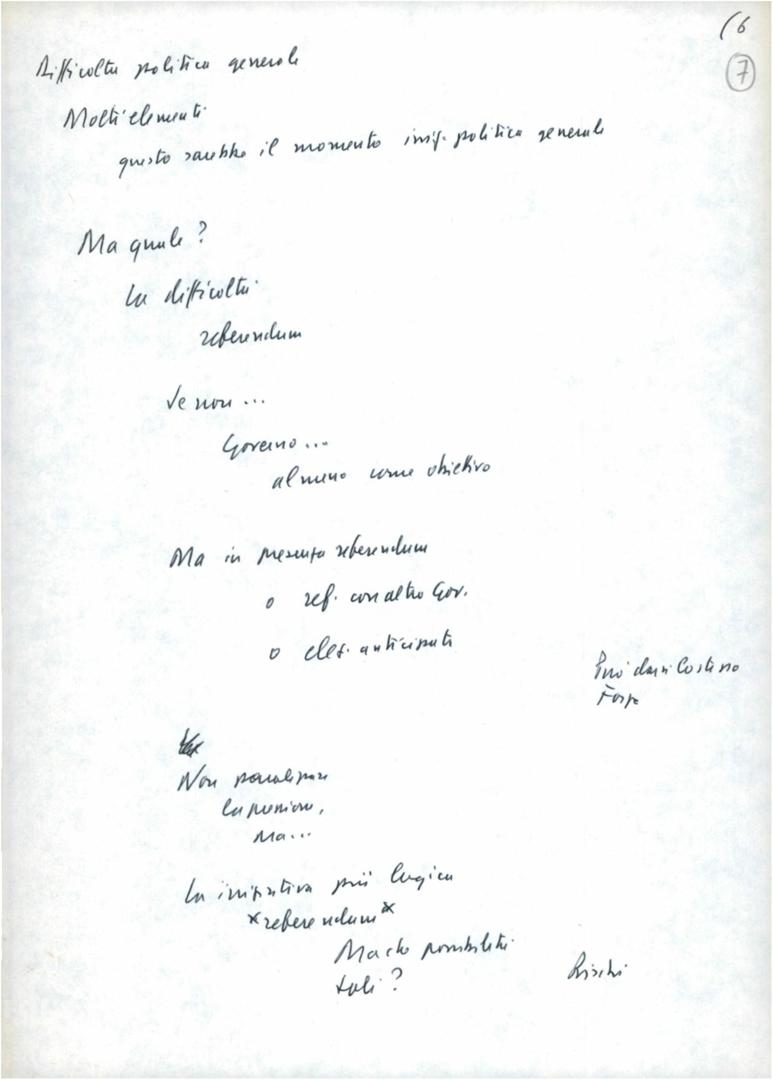 (6
7
Difficoltà politica generale
Molti elementi
questo sarebbe il momento iniz. politica generale
Ma quale?
La difficoltà
referendum
Se non ...
Governo ...
almeno come obiettivo
Ma in presenza referendum
o ref. con altro Gov.
o elez. anticipate
Può darsi Costino
Forze
Non paralizzare
la pensione,
Ma...
La iniziativa più logica
x referendum x
Ma che possibilità
tali?
Rischi